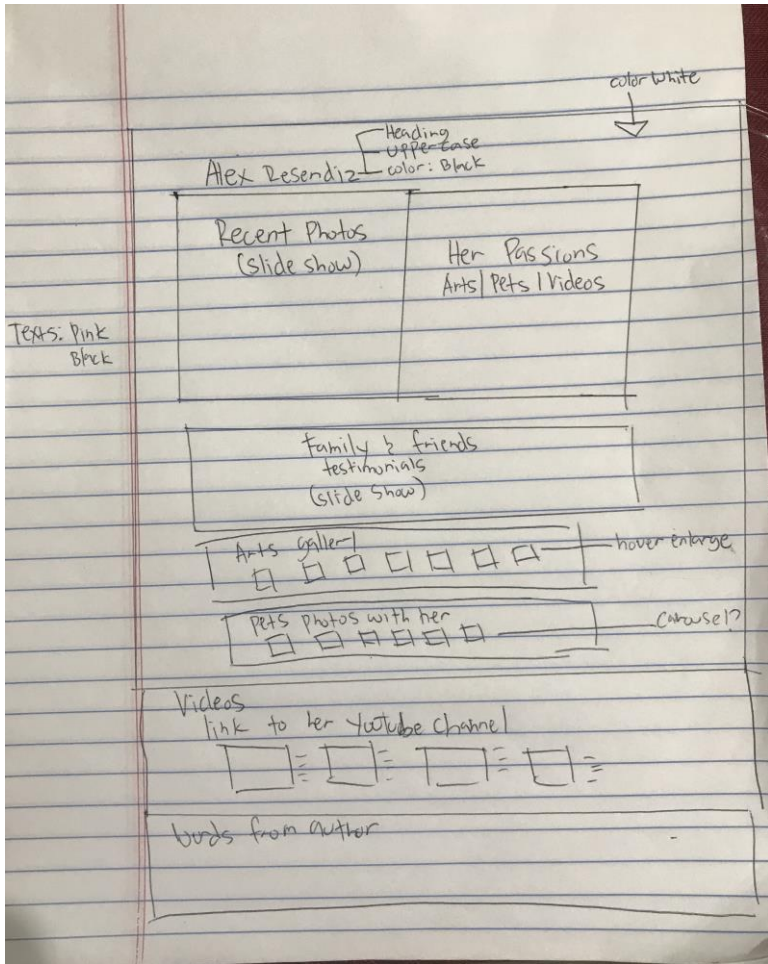 color white
Heading
uppercase
color: Black
Alex Resendiz
Recent Photos
(slide show)
Her Passions
Arts | Pets | Videos
Texts: Pink
Black
family & friends
testimonials
(slide show)
Arts gallery
hover enlarge
pets photos with her
carousel?
Videos
link to her Youtube channel
words from author